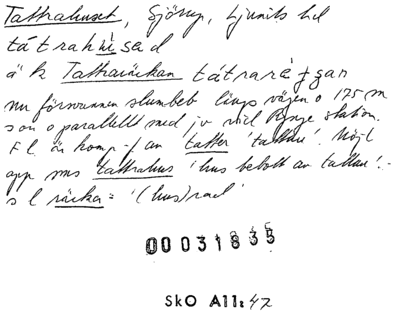 Tattrahuset, Sjörup, Ljunits hd
táttrahùsəd
äk Tattraräckan tátrarèkan
nu försvunnen slumbeb längs vägen o 175 m
s om o parallellt med jv vid Rynge station.
FL är komp-f av tatter 'tattare'. Möjl
opp ssms tattrahus 'hus bebott av tattare'.
SL räcka = '(hus)rad'
00031835
SkO A11:42